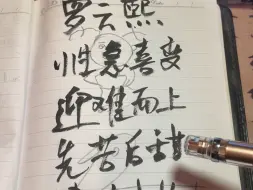 罗云熙
性急喜变
迎难而上
先苦后甜